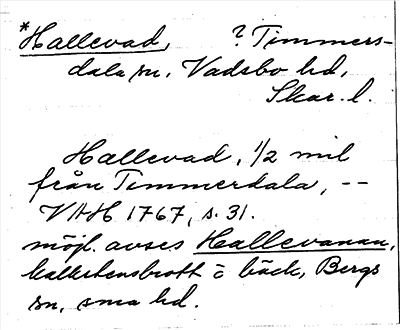 *Hallevad, ? Timmers-
dala sn, Vadsbo hd,
Skar. l.
Hallevad, 1/2 mil
från Timmerdala, --
VAH 1767, s. 31.
möjl. avses Hallevanan,
kalkstensbrott o bäck, Bergs
sn, sma hd.